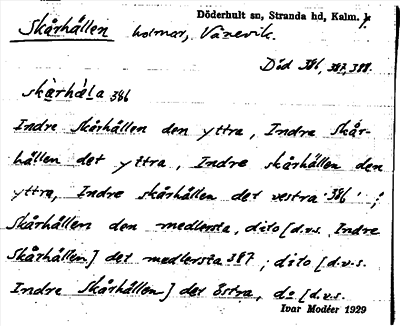 Döderhult sn, Stranda hd, Kalm. l.
Skårhållen holmar, Vånevik.
Död 386, 387, 388.
skårhåla 386
Indre Skårhållen den yttra, Indre Skår-
hållen det yttra, Indre skårhållen den
yttra, Indre skårhållen det vestra 386 ;
Skårhållen den medlersta, dito [d.v.s. Indre
Skårhållen] det medlersta 387 ; dito [d.v.s.
Indre Skårhållen] det östra, do [d.v.s.
Ivar Modéer 1929